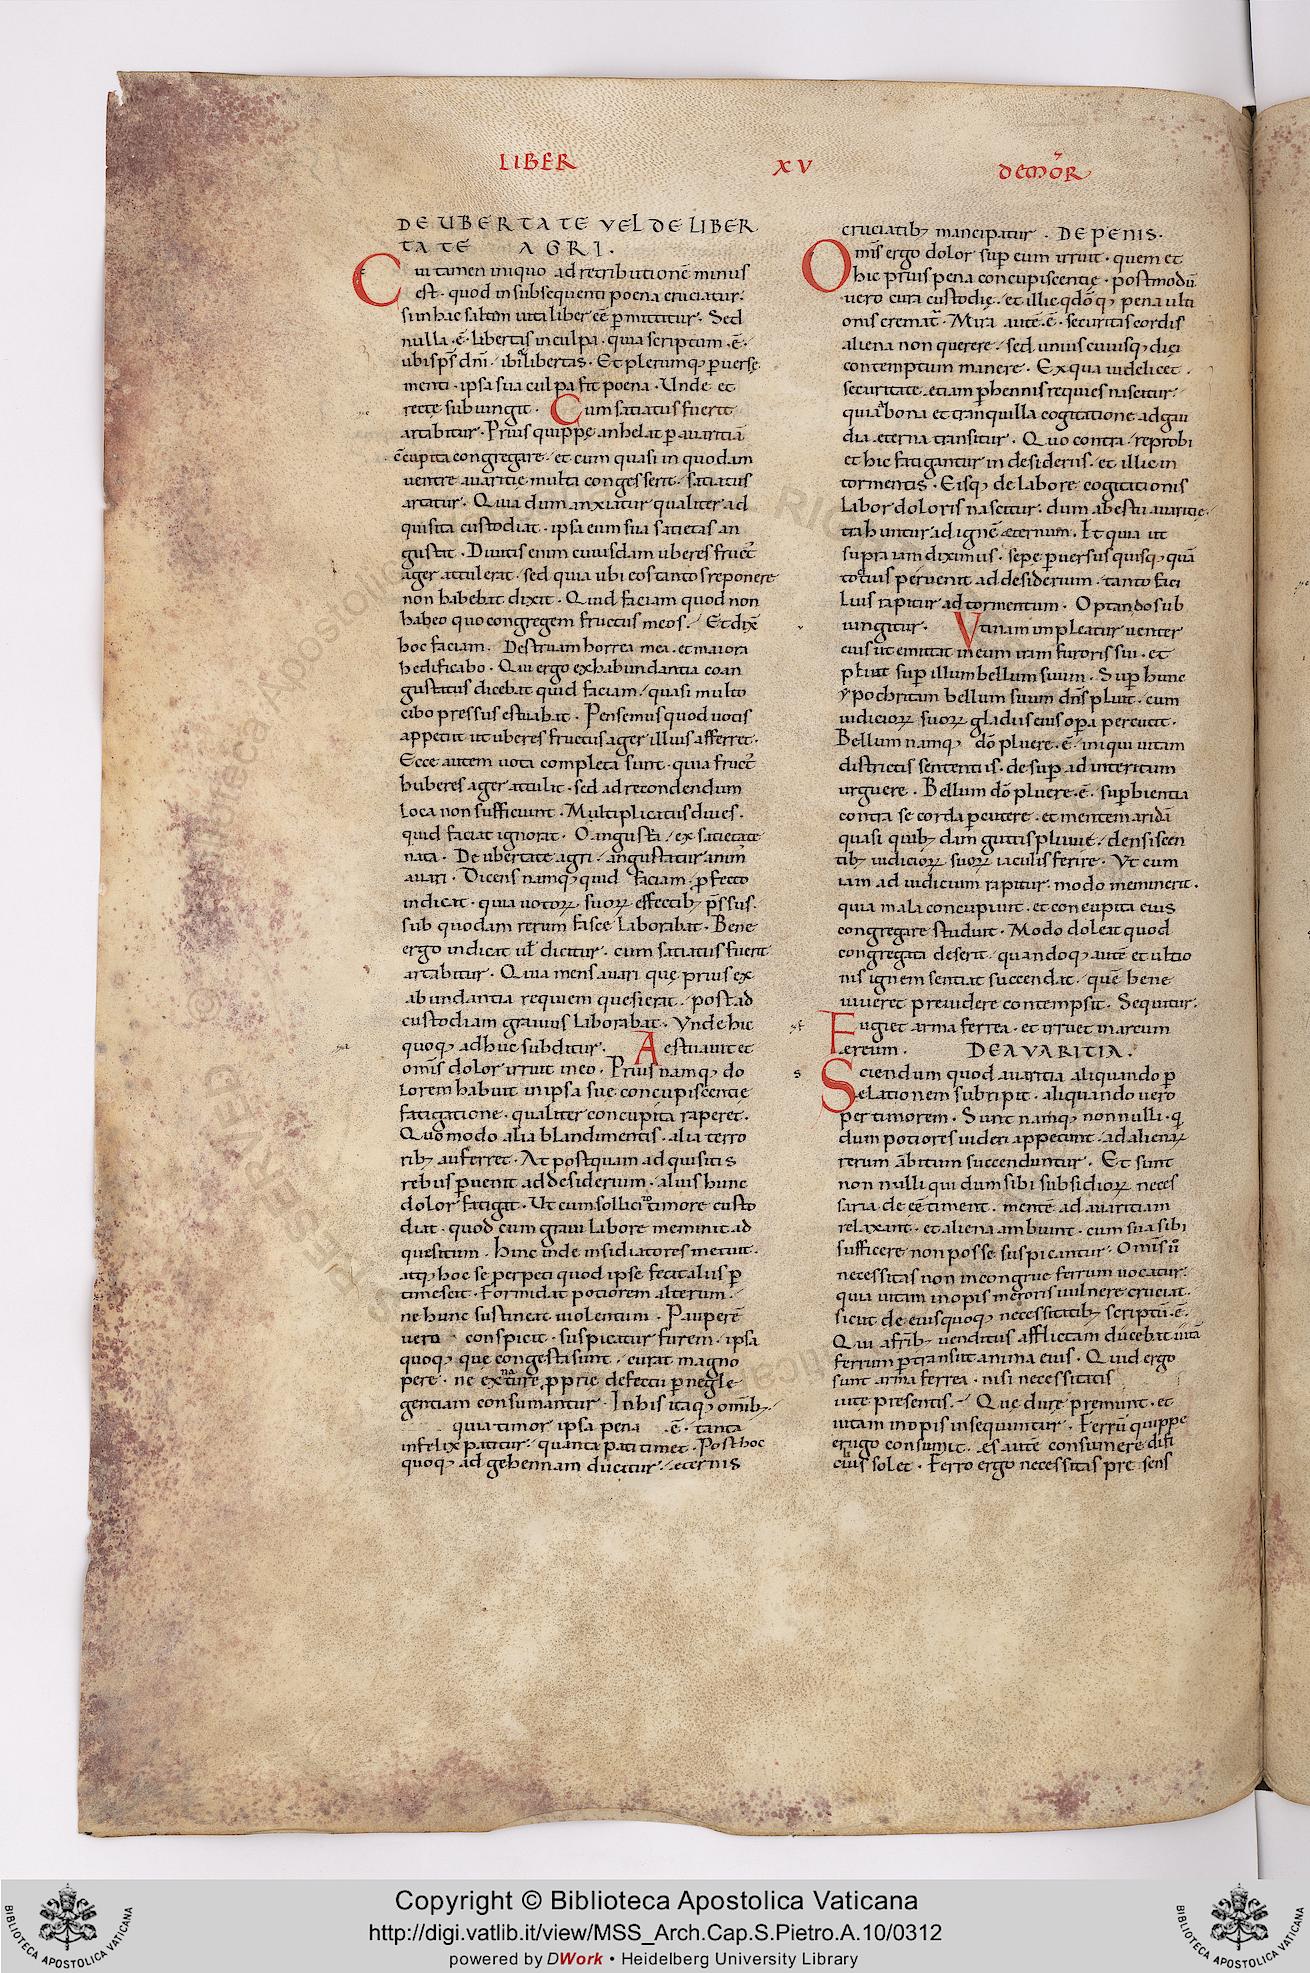 LIBER XV DEMOR̄
DE UBERTATE VEL DE LIBER
TATE AGRI.
Cui tamen iniquo ad retributionē minus
est · quod in subsequenti poena cruciatur:
si in hac saltim uita liber eē p̄mittitur · Sed
nulla · ē · libertas in culpa · quia scriptum · ē ·
ubi sp̄s dn̄i · ibi libertas · Et plerumq; p̄uersę
menti · ipsa sua culpa fit poena · Unde et
recte subiungit · Cum satiatus fuerit
artabitur · Prius quippę anhelat p̄ auaritiā
cōcupita congregare · et cum quasi in quodam
uentre auaritię multa congesserit · satiatus
artatur · Quia dum anxiatur qualiter ad
quisita custodiat · ipsa eum sua satietas an
gustat · Diuitis enim cuiusdam uberes fruct᷒
ager attulerat · sed quia ubi eos tantos reponere
non habebat dixit · Quid faciam quod non
habeo quo congregem fructus meos · Et dix̄
hoc faciam · Destruam horrea mea · et maiora
hedificabo · Qui ergo ex habundantia coan
gustatus dicebat quid faciam · quasi multo
cibo pressus estuabat · Pensemus quod uotis
appetiit ut uberes fructus ager illius afferret ·
Ecce autem uota completa sunt · quia fruct᷒
huberes ager attulit · sed ad recondendum
loca non sufficiunt · Multiplicatus diues ·
quid faciat ignorat · O angusta / ex satietate
nata · De ubertate agri / angustatur anim᷒
auari · Dicens namq; quid faciam · p̄fecto
indicat · quia uotoꝝ suoꝝ effectib; p̄ssus ·
sub quodam rerum fasce laborabat · Bene
ergo indicat uł dicitur · cum satiatus fuerit
artabitur · Quia mens auari quę prius ex
abundantia requiem quesierat · post ad
custodiam grauius laborabat · Vnde hic
quoq; adhuc subditur · Aestuauit et
omīs dolor irruit in eo · Prius namq; do
lorem habuit in ipsa sue concupiscentie
fatigatione · qualiter concupita raperet ·
Quomodo alia blandimentis · alia terro
rib; auferret · At postquam adquisitis
rebus p̄uenit ad desiderium · alius hunc
dolor fatigat · Ut cum sollicito timore custo
diat · quod cum graui labore meminit ad
quesitum · Hinc inde insidiatores metuit ·
atq; hoc se perpeti quod ipse fecit aliis p̄
timescit · Formidat potiorem alterum ·
ne hunc sustineat uiolentum · Pauperē
uero conspicit · suspicatur furem · ipsa
quoq; que congesta sunt · curat magno
pere · ne ex natūre p̄prie defectu p̄ negle
gentiam consumantur · In his itaq; omīb; ·
quia timor ipsa pena · ē · tanta
infelix patitur: quanta pati timet · Post hoc
quoq; ad gehennam ducitur · eternis
cruciatib; mancipatur · DE PENIS ·
Omīs ergo dolor sup̄ eum irruit · quem et
hic prius pena concupiscentię · postmodū
uero cura custodię · et illic q̄dōq; pena ulti
onis cremat᷒ · Mira autē · ē · securitas cordis
aliena non querere · sed unius cuiusq; diei
contemptum manere · Ex qua uidelicet ·
securitate etiam p̄hennis requies nascitur ·
quia bona et tranquilla cogitatione ad gau
dia eterna transitur · Quo contra / reprobi
et hic fatigantur in desideriis · et illic in
tormentis · Eisq; de labore cogitationis
labor doloris nascitur · dum ab estu auaritię ·
trahuntur ad ignē æternum · Et quia ut
supra iam diximus · sepę p̄uersus quisq; quā
totius peruenit ad desiderium · tanto faci
lius rapitur ad tormentum · Optando sub
iungitur · Vtinam impleatur uenter
eius ut emittat in eum iram furoris sui · et
pluat sup̄ illum bellum suum · Sup̄ hunc
ypochritam bellum suum dn̄s pluit · cum
iudicioꝝ suoꝝ gladiis eius opa percutit ·
Bellum namq; dō pluere · ē · iniqui uitam
districtis sententiis · desup̄ ad interitum
urguere · Bellum dō pluere · ē · sup̄bientia
contra se corda p̄cutere · et mentem aridā
quasi quib; dam guttis pluuie / densiscen
tib; iudicioꝝ suoꝝ iaculis ferire · Vt cum
iam ad iudicium rapitur · modo meminerit ·
quia mala concupiuit · et concupita eius
congregare studuit · Modo doleat quod
congregata deserit · quandoq; autē et ultio
nis ignem sentiat succendat · quē bene
uiueret preuidere contempsit · Sequitur ·
Fugiet arma ferrea · et irruet in arcum
ereum · DE AVARITIA ·
Sciendum quod auaritia aliquando p̄
elationem subripit · aliquando uero
per timorem · Sunt namq; nonnulli · q̄
dum potiores uideri appetunt · ad alienaꝝ
rerum ābitum succenduntur · Et sunt
non nulli qui dum sibi subsidioꝝ neces
saria deeē timent · mentē ad auaritiam
relaxant · et aliena ambiunt · cum sua sibi
sufficere non posse suspicantur · Omīs ū
necessitas non incongrue ferrum uocatur ·
quia uitam inopis meroris uulnere cruciat ·
sicut de eius quoq; necessitatib; scriptū · ē ·
Qui a fr̄ib; uenditus afflictam ducebat uitā
ferrum p̄transiit anima eius · Quid ergo
sunt arma ferrea · nisi necessitatis
uite presentis · Quę dure premunt · et
uitam inopis insequuntur · Ferrū quippe
erugo consumit · es autē consumere diffi
cilius solet · Ferro ergo necessitas pre sens